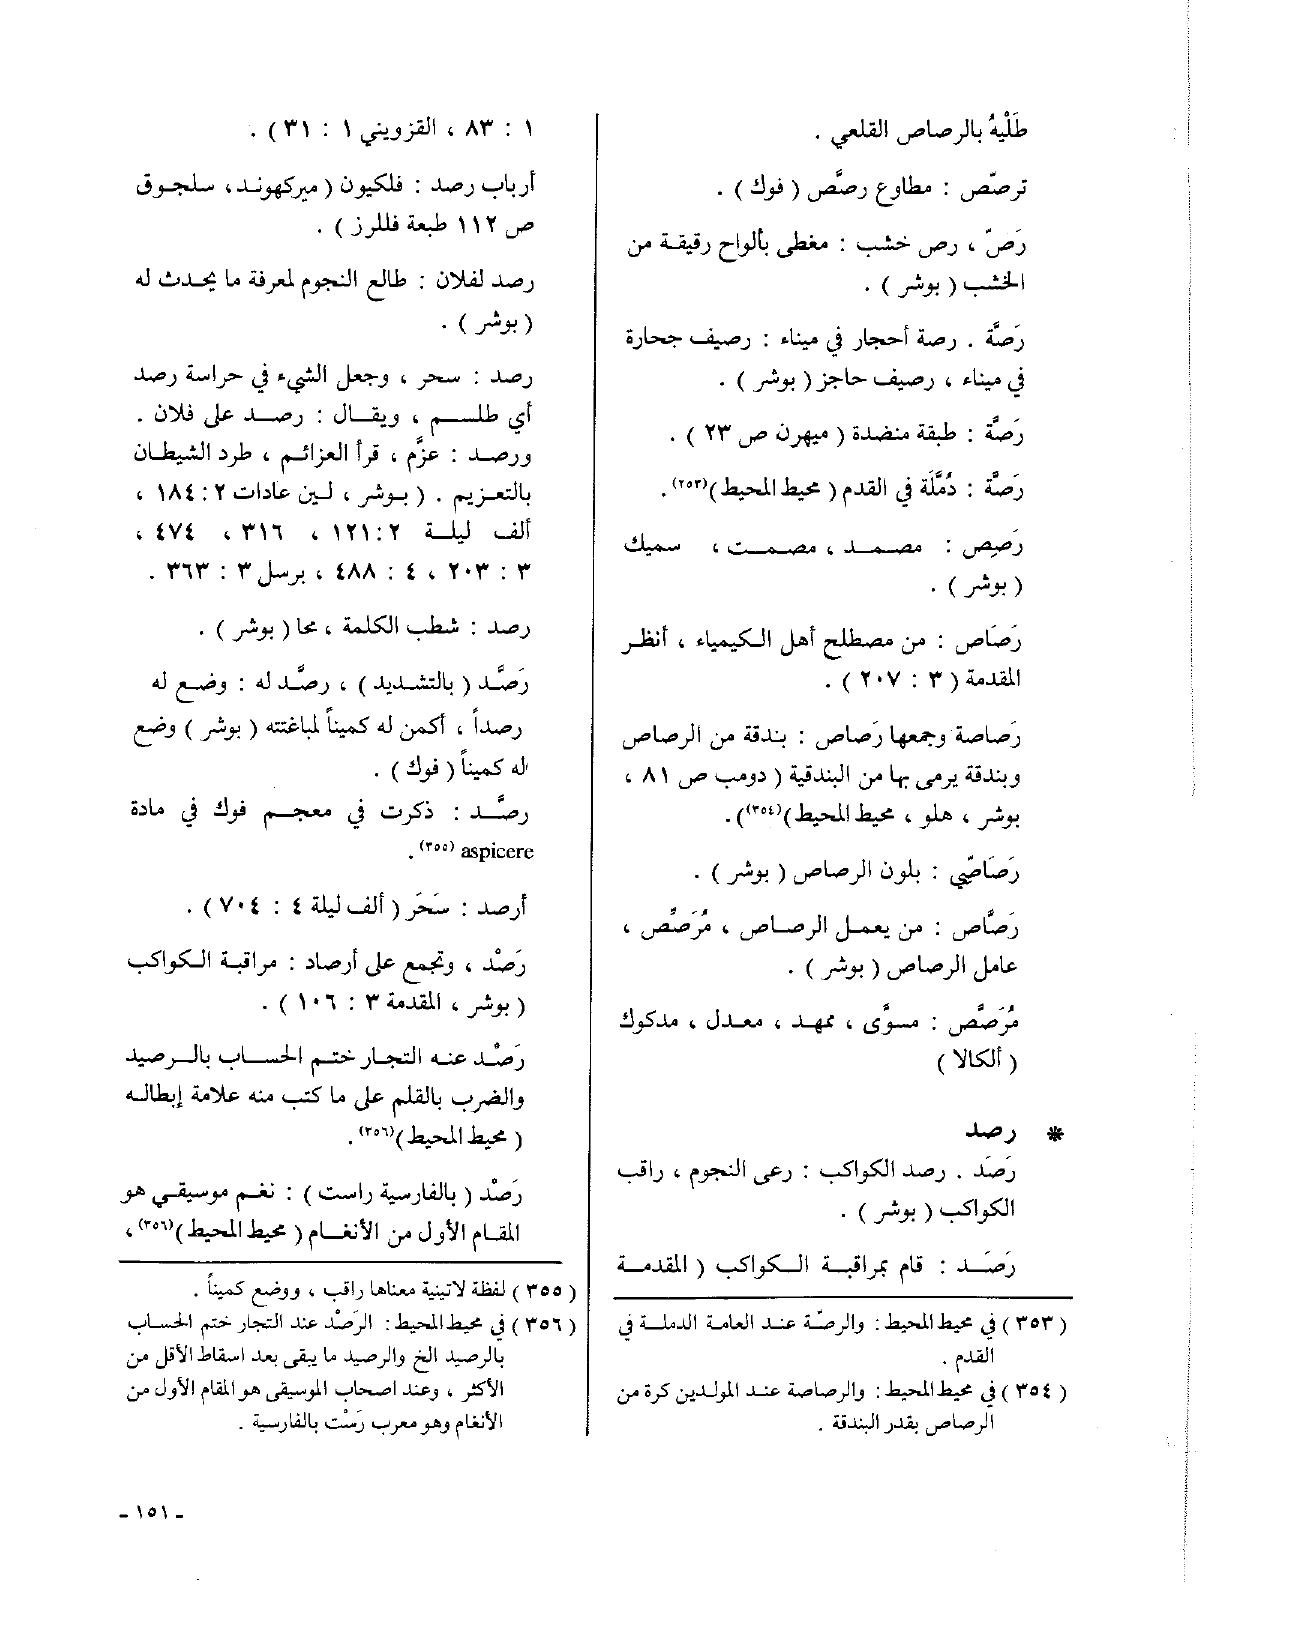 طَلْيهُ بالرصاص القلعي .
ترصّص : مطاوع رصَّص ( فوك ) .
رَصّ ، رص خشب : مغطى بألواح رقيقة من
الخشب ( بوشر ) .
رَصَّة . رصة أحجار في ميناء : رصيف جحارة
في ميناء ، رصيف حاجز ( بوشر ) .
رَصَّة : طبقة منضدة ( ميهرن ص ٢٣ ) .
رَصَّة : دُمَّلَة في القدم ( محيط المحيط )(٣٥٣).
رَصِيص : مصمد ، مصمت ، سميك
( بوشر ) .
رَصَاص : من مصطلح أهل الكيمياء ، أنظر
المقدمة ( ٣ : ٢٠٧ ) .
رَصاصة وجمعها رَصاص : بندقة من الرصاص
وبندقة يرمى بها من البندقية ( دومب ص ٨١ ،
بوشر ، هلو ، محيط المحيط )(٣٥٤)).
رَصَاصّي : بلون الرصاص ( بوشر ) .
رَصَّاص : من يعمل الرصاص ، مُرَصِّص ،
عامل الرصاص ( بوشر ) .
مُرَصَّص : مسوَّى ، ممهد ، معدل ، مدكوك
( ألكالا )
* رصد
رَصَد . رصد الكواكب : رعى النجوم ، راقب
الكواكب ( بوشر ) .
رَصَد : قام بمراقبة الكواكب ( المقدمة
( ٣٥٣ ) في محيط المحيط : والرصّة عند العامة الدملة في
القدم .
( ٣٥٤ ) في محيط المحيط : والرصاصة عند المولدين كرة من
الرصاص بقدر البندقة .
١ : ٨٣ ، القزويني ١ : ٣١ ) .
أرباب رصد : فلكيون ( ميركهوند ، سلجوق
ص ١١٢ طبعة فللرز ) .
رصد لفلان : طالع النجوم لمعرفة ما يحدث له
( بوشر ) .
رصد : سحر ، وجعل الشيء في حراسة رصد
أي طلسم ، ويقال : رصد على فلان .
ورصد : عزَّم ، قرأ العزائم ، طرد الشيطان
بالتعزيم . ( بوشر ، لين عادات ٢ : ١٨٤ ،
ألف ليلة ٢ : ١٢١ ، ٣١٦ ، ٤٧٤ ،
٣ : ٢٠٣ ، ٤ : ٤٨٨ ، برسل ٣ : ٣٦٣ .
رصد : شطب الكلمة ، محا ( بوشر ) .
رَصَّد ( بالتشديد ) ، رصَّد له : وضع له
رصداً ، أكمن له كميناً لمباغتته ( بوشر ) وضع
له كميناً ( فوك ) .
رصَّد : ذكرت في معجم فوك في مادة
aspicere (٣٥٥) .
أرصد : سَحَر ( ألف ليلة ٤ : ٧٠٤ ) .
رَصْد ، وتجمع على أرصاد : مراقبة الكواكب
( بوشر ، المقدمة ٣ : ١٠٦ ) .
رَصْد عنه التجار ختم الحساب بالرصيد
والضرب بالقلم على ما كتب منه علامة إبطاله
( محيط المحيط )(٣٥٦).
رَصْد ( بالفارسية راست ) : نغم موسيقي هو
المقام الأول من الأنغام ( محيط المحيط )(٣٥٦) ،
( ٣٥٥ ) لفظة لاتينية معناها راقب ، ووضع كميناً .
( ٣٥٦ ) في محيط المحيط : الرَصْد عند التجار ختم الحساب
بالرصيد الخ والرصيد ما يبقى بعد اسقاط الأقل من
الأكثر ، وعند اصحاب الموسيقى هو المقام الأول من
الأنغام وهو معرب رَسْت بالفارسية .
ـ ١٥١ ـ